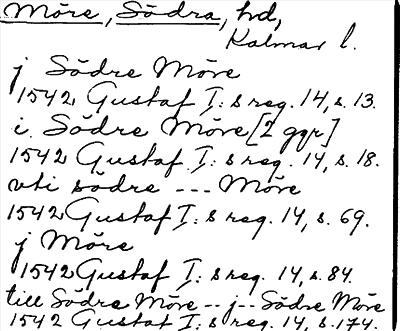 Möre, Södra, hd,
Kalmar l.
j Södre Möre
1542 Gustaf I: s reg. 14, s. 13.
i Södre Möre [2 ggr]
1542 Gustaf I: s reg. 14, s. 18.
vti södre --- Möre
1542 Gustaf I: s reg. 14, s. 69.
j Möre
1542 Gustaf I: s reg. 14, s. 84.
till Södre Möre -- j -- Södre Möre
1542 Gustaf I: s reg. 14, s. 174.